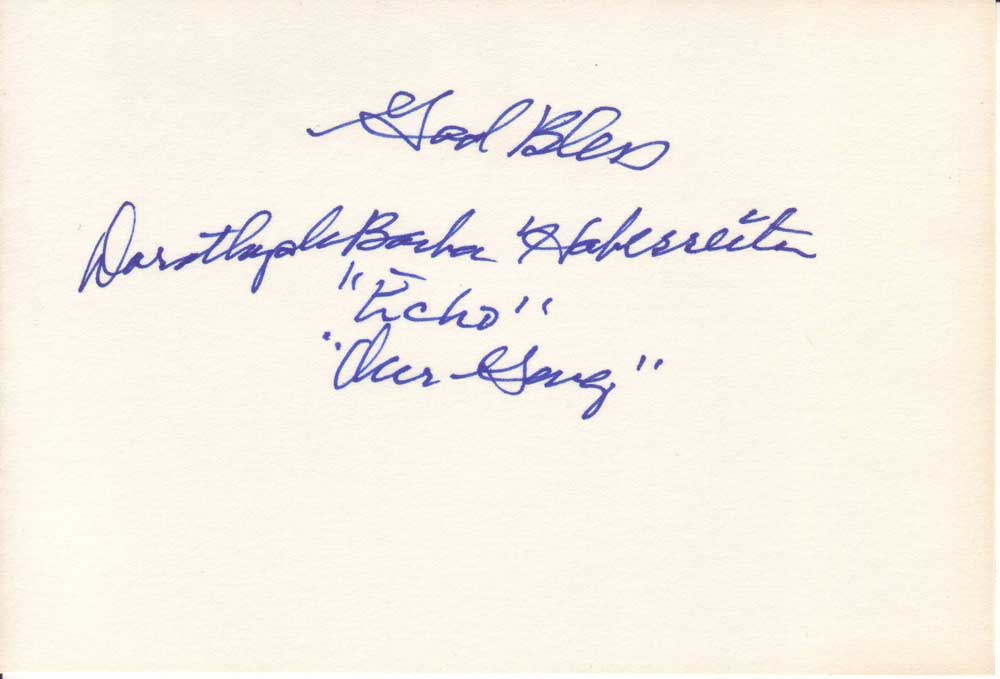 God Bless
Dorothy deBorba Haberreiter
"Echo"
"Our Gang"